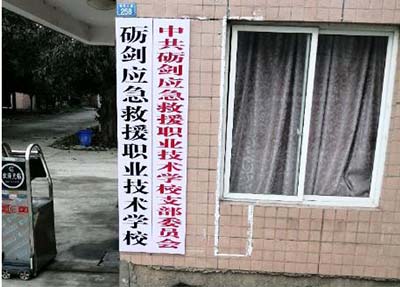 258
砺剑应急救援职业技术学校
中共砺剑应急救援职业技术学校支部委员会